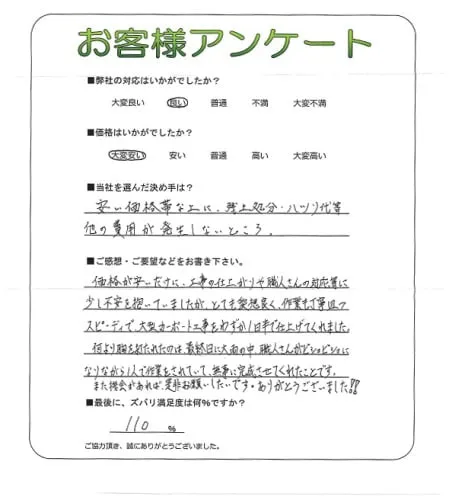 お客様アンケート
■弊社の対応はいかがでしたか?
大変良い 良い 普通 不満 大変不満
■価格はいかがでしたか?
大変安い 安い 普通 高い 大変高い
■当社を選んだ決め手は?
安い価格帯な上に、残土処分・ハツリ代等
他の費用が発生しないところ。
■ご感想・ご要望などをお書き下さい。
価格が安いだけに、工事の仕上がりや職人さんの対応等に
少し不安を抱いていましたが、とても愛想良く、作業も丁寧且つ
スピーディで、大型カーポート工事をわずか1日半で仕上げてくれました。
何より胸を打たれたのは、最終日に大雨の中、職人さんがビショビショに
なりながら1人で作業をされていて、無事に完成させてくれたことです。
また機会があれば、是非お願いしたいです。ありがとうございました!!
■最後に、ズバリ満足度は何%ですか?
110 %
ご協力頂き、誠にありがとうございました。